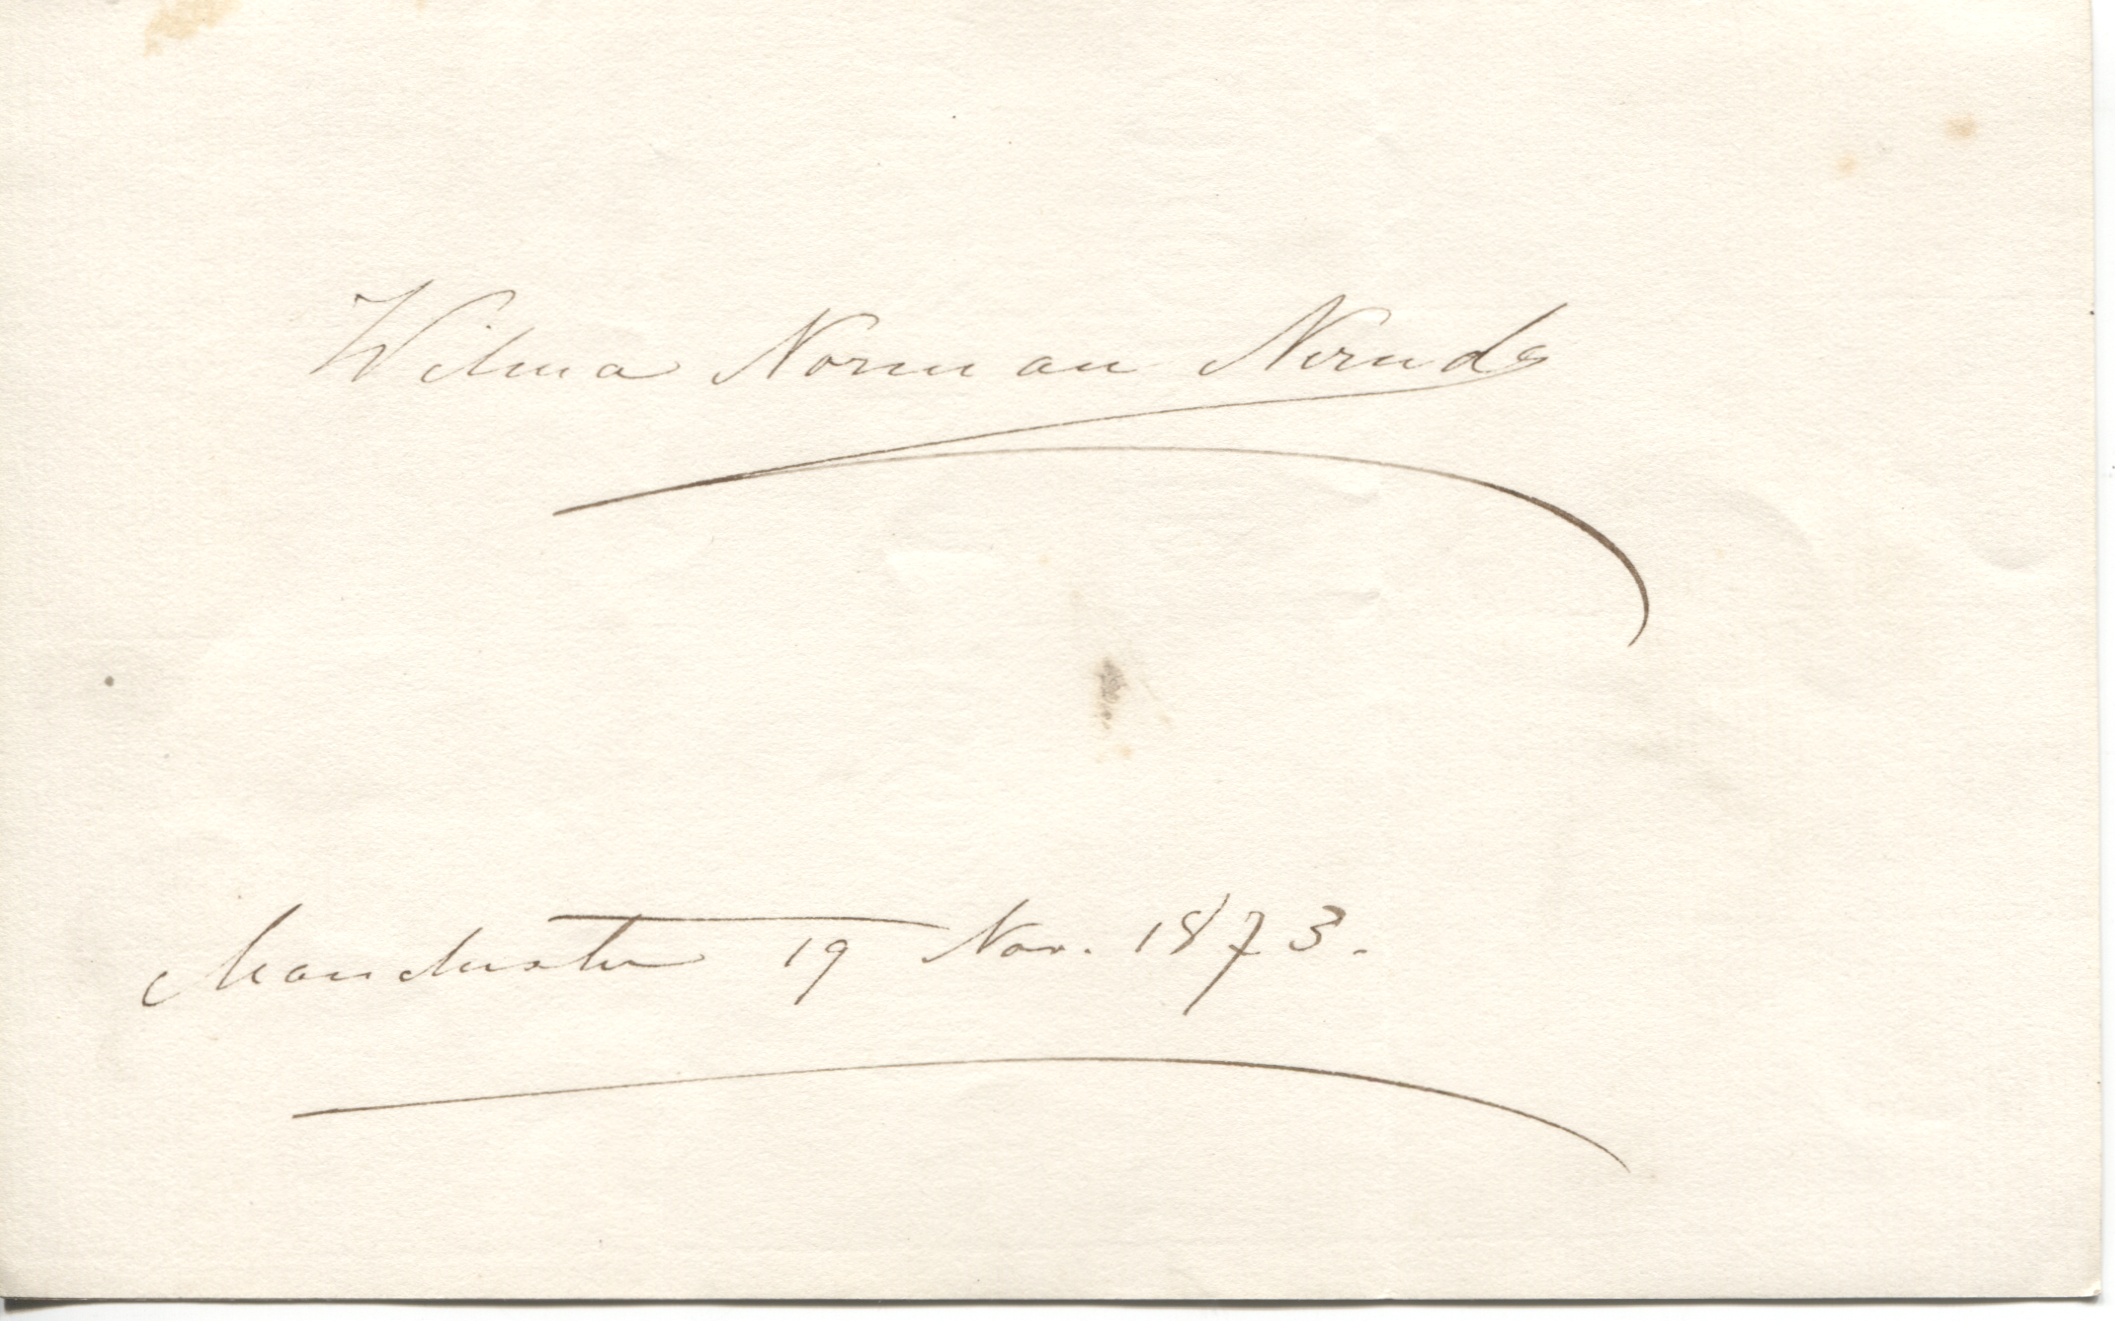 Wilma Norman Neruda
Manchester 19 Nov. 1873.